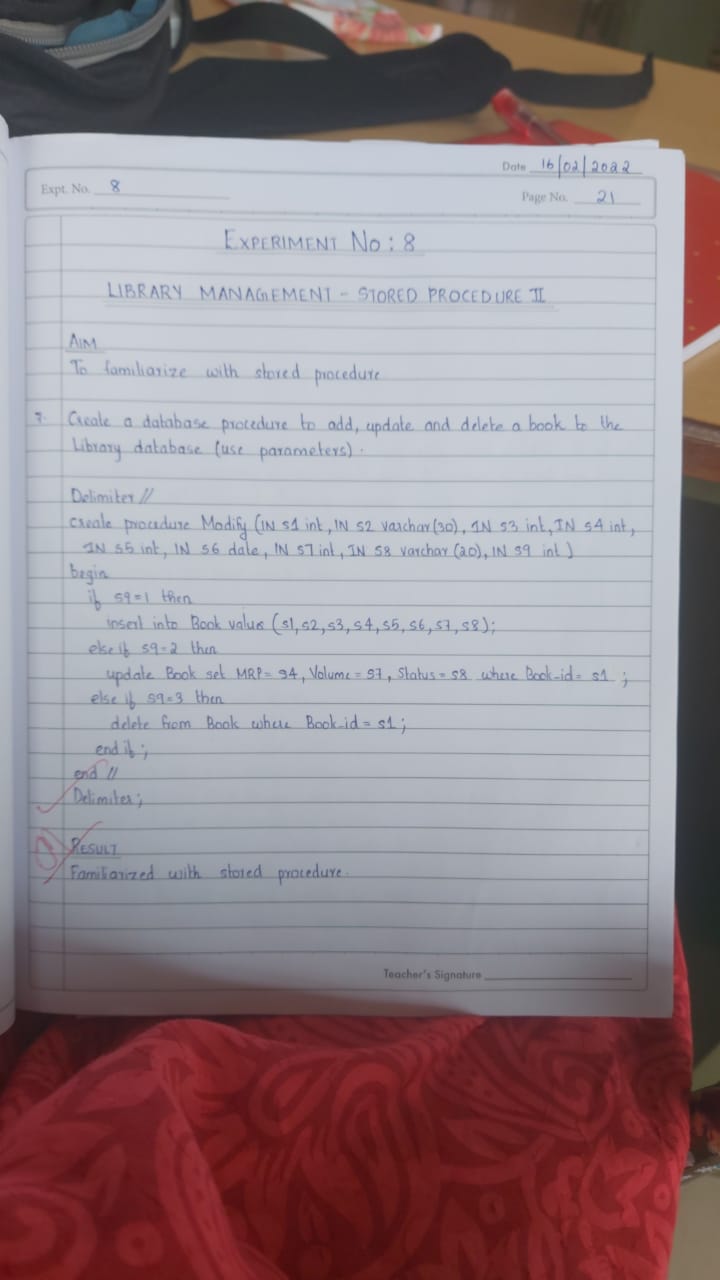 Date 16/02/2022
Expt. No. 8
Page No. 21
EXPERIMENT NO : 8
LIBRARY MANAGEMENT - STORED PROCEDURE II
AIM
To familiarize with stored procedure
7. Create a database procedure to add, update and delete a book to the
Library database (use parameters).
Delimiter //
create procedure Modify (IN S1 int, IN S2 varchar(30), IN S3 int, IN S4 int,
IN S5 int, IN S6 date, IN S7 int, IN S8 varchar (20), IN S9 int)
begin
if S9=1 then
insert into Book values (S1, S2, S3, S4, S5, S6, S7, S8);
else if S9=2 then
update Book set MRP= S4, Volume = S7, Status = S8 where Book-id= S1 ;
else if S9=3 then
delete from Book where Book-id = S1;
end if ;
end //
Delimiter ;
RESULT
Familiarized with stored procedure.
Teacher's Signature